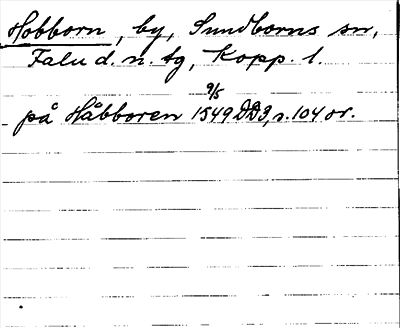 Hobborn, by, Sundborns sn,
Falu d. n. tg, Kopp. l.
på Håbboren 1549 9/5 DD3, s. 104 or.